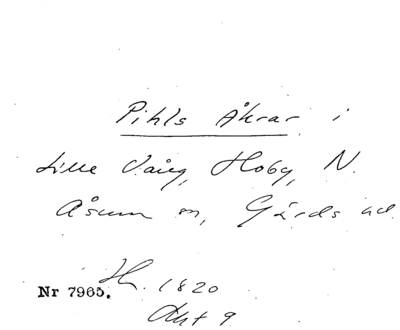 Pihls Åkrar i
Lille Vång, Hoby, N.
Åsum sn, Gärds hd
H. 1820
Nr 7965.
Akt 9